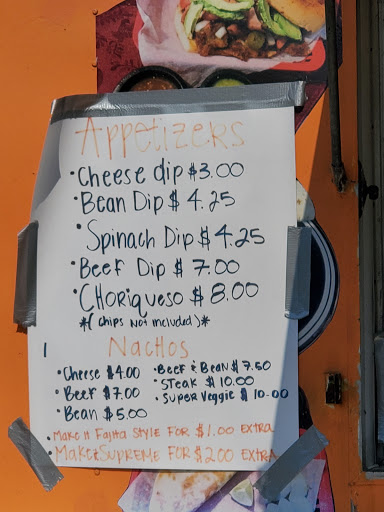 Appetizers
• Cheese dip $3.00
• Bean Dip $4.25
• Spinach Dip $4.25
• Beef Dip $7.00
• CHoriqueso $8.00
*( chips Not included )*
Nachos
• Cheese $4.00 • Beef & Bean $7.50
• Beef $7.00 • Steak $10.00
• Bean $5.00 • Super Veggie $10.00
• Make it Fajita Style For $1.00 Extra
• Make it Supreme For $2.00 Extra